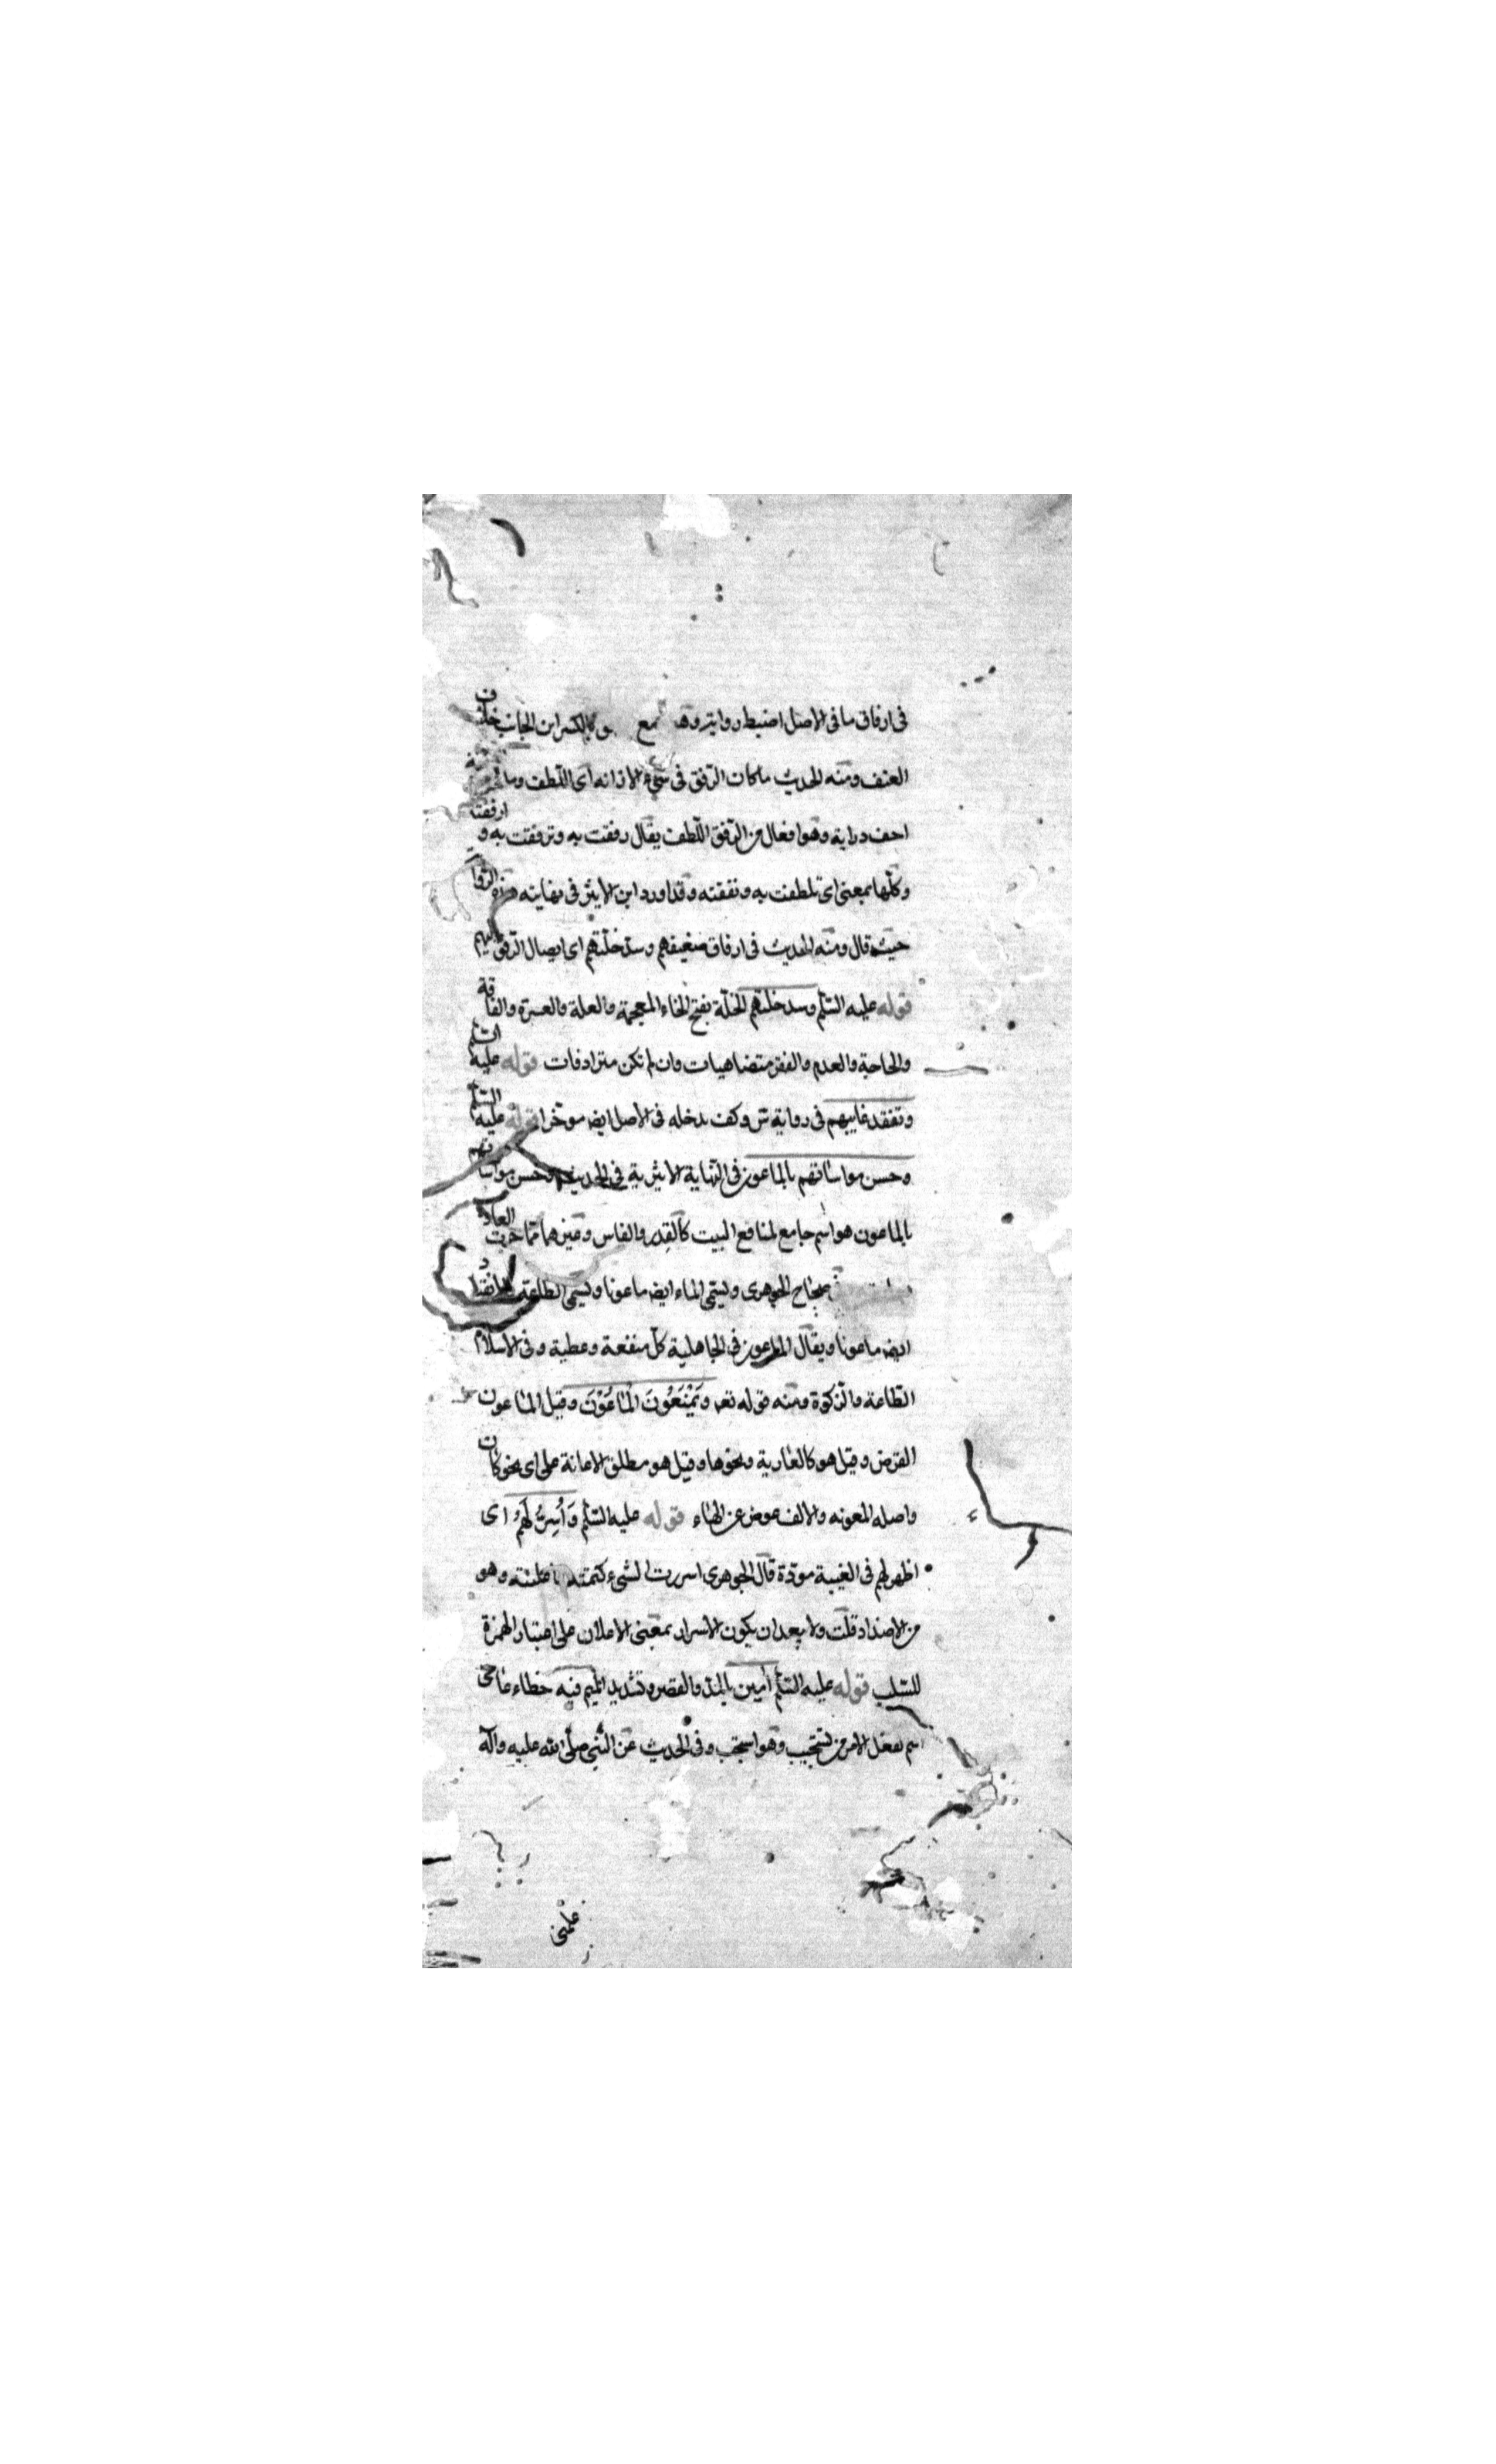 فى ارفاق ما فى الاصل اضبط رواية وهو مع بالكسر لين الجانب خلاف
العنف ومنه الحديث ما كان الرّفق فى شىء الا زانه اى اللّطف وما
احف دراية وهو افعال من الرّفق اللّطف يقال رفقت به وترفقت به وارفقته
وكلّها بمعنى اى تلطفت به ونفقته وقد اورد ابن الاثير فى نهايته هذه الرّوا
حيث قال ومنه الحديث فى ارفاق ضعيفهم وسدّ خلّتهم اى ايصال الرّفق اليهم
قوله عليه السّلم وسد خلتهم الخلّة بفتح الخاء المعجمة والعلة والعسرة والفاقة
والحاجة والعدم والفقر متضاهيات وان لم تكن مترادفات قوله عليه السّلم
وتفقد غايبهم فى رواية س وكف بدخله فى الاصل ايضه موخّرا قوله عليه السّلم
وحسن مواساتهم بالماعون فى النّهاية الاثيرية فى الحديث وحسن مواساتهم
بالماعون هو اسم جامع لمنافع البيت كالقِدر والفاس وغيرهما ممّا جرت العادة
صحاح الجوهرى ويسمّى الماء ايضه ماعونا ويسمّى الطاعة والانقياد
ايضه ماعونا ويقال الماعون فى الجاهلية كلّ منفعة وعطية وفى الاسلام
الطّاعة والزّكوة ومنه قوله تعه وَيَمْنَعُونَ الْمَاعُوْنَ وقيل الماعون
القرض وقيل هو كالعارية ونحوها وقيل هو مطلق الاعانة على اى نحو كان
واصله المعونه والالف عوض عن الهاء قوله عليه السّلم وَاُسِرُّ لَهُمْ اى
اظهر لهم فى الغيبة مودّة قال الجوهرى اسررت الشىء كتمته واعلنته وهو
من الاضداد قلت ولا يبعد ان يكون الاسرار بمعنى الاعلان على اعتبار الهمزة
للسّلب قوله عليه السّلم آمين بالمدّ والقصر وتشديد الميم فيه خطاء عامى
اسم لفعل الامر من تستجيب وهو استجب وفى الحديث عن النّبى صلّى الله عليه وآله
علّمنى